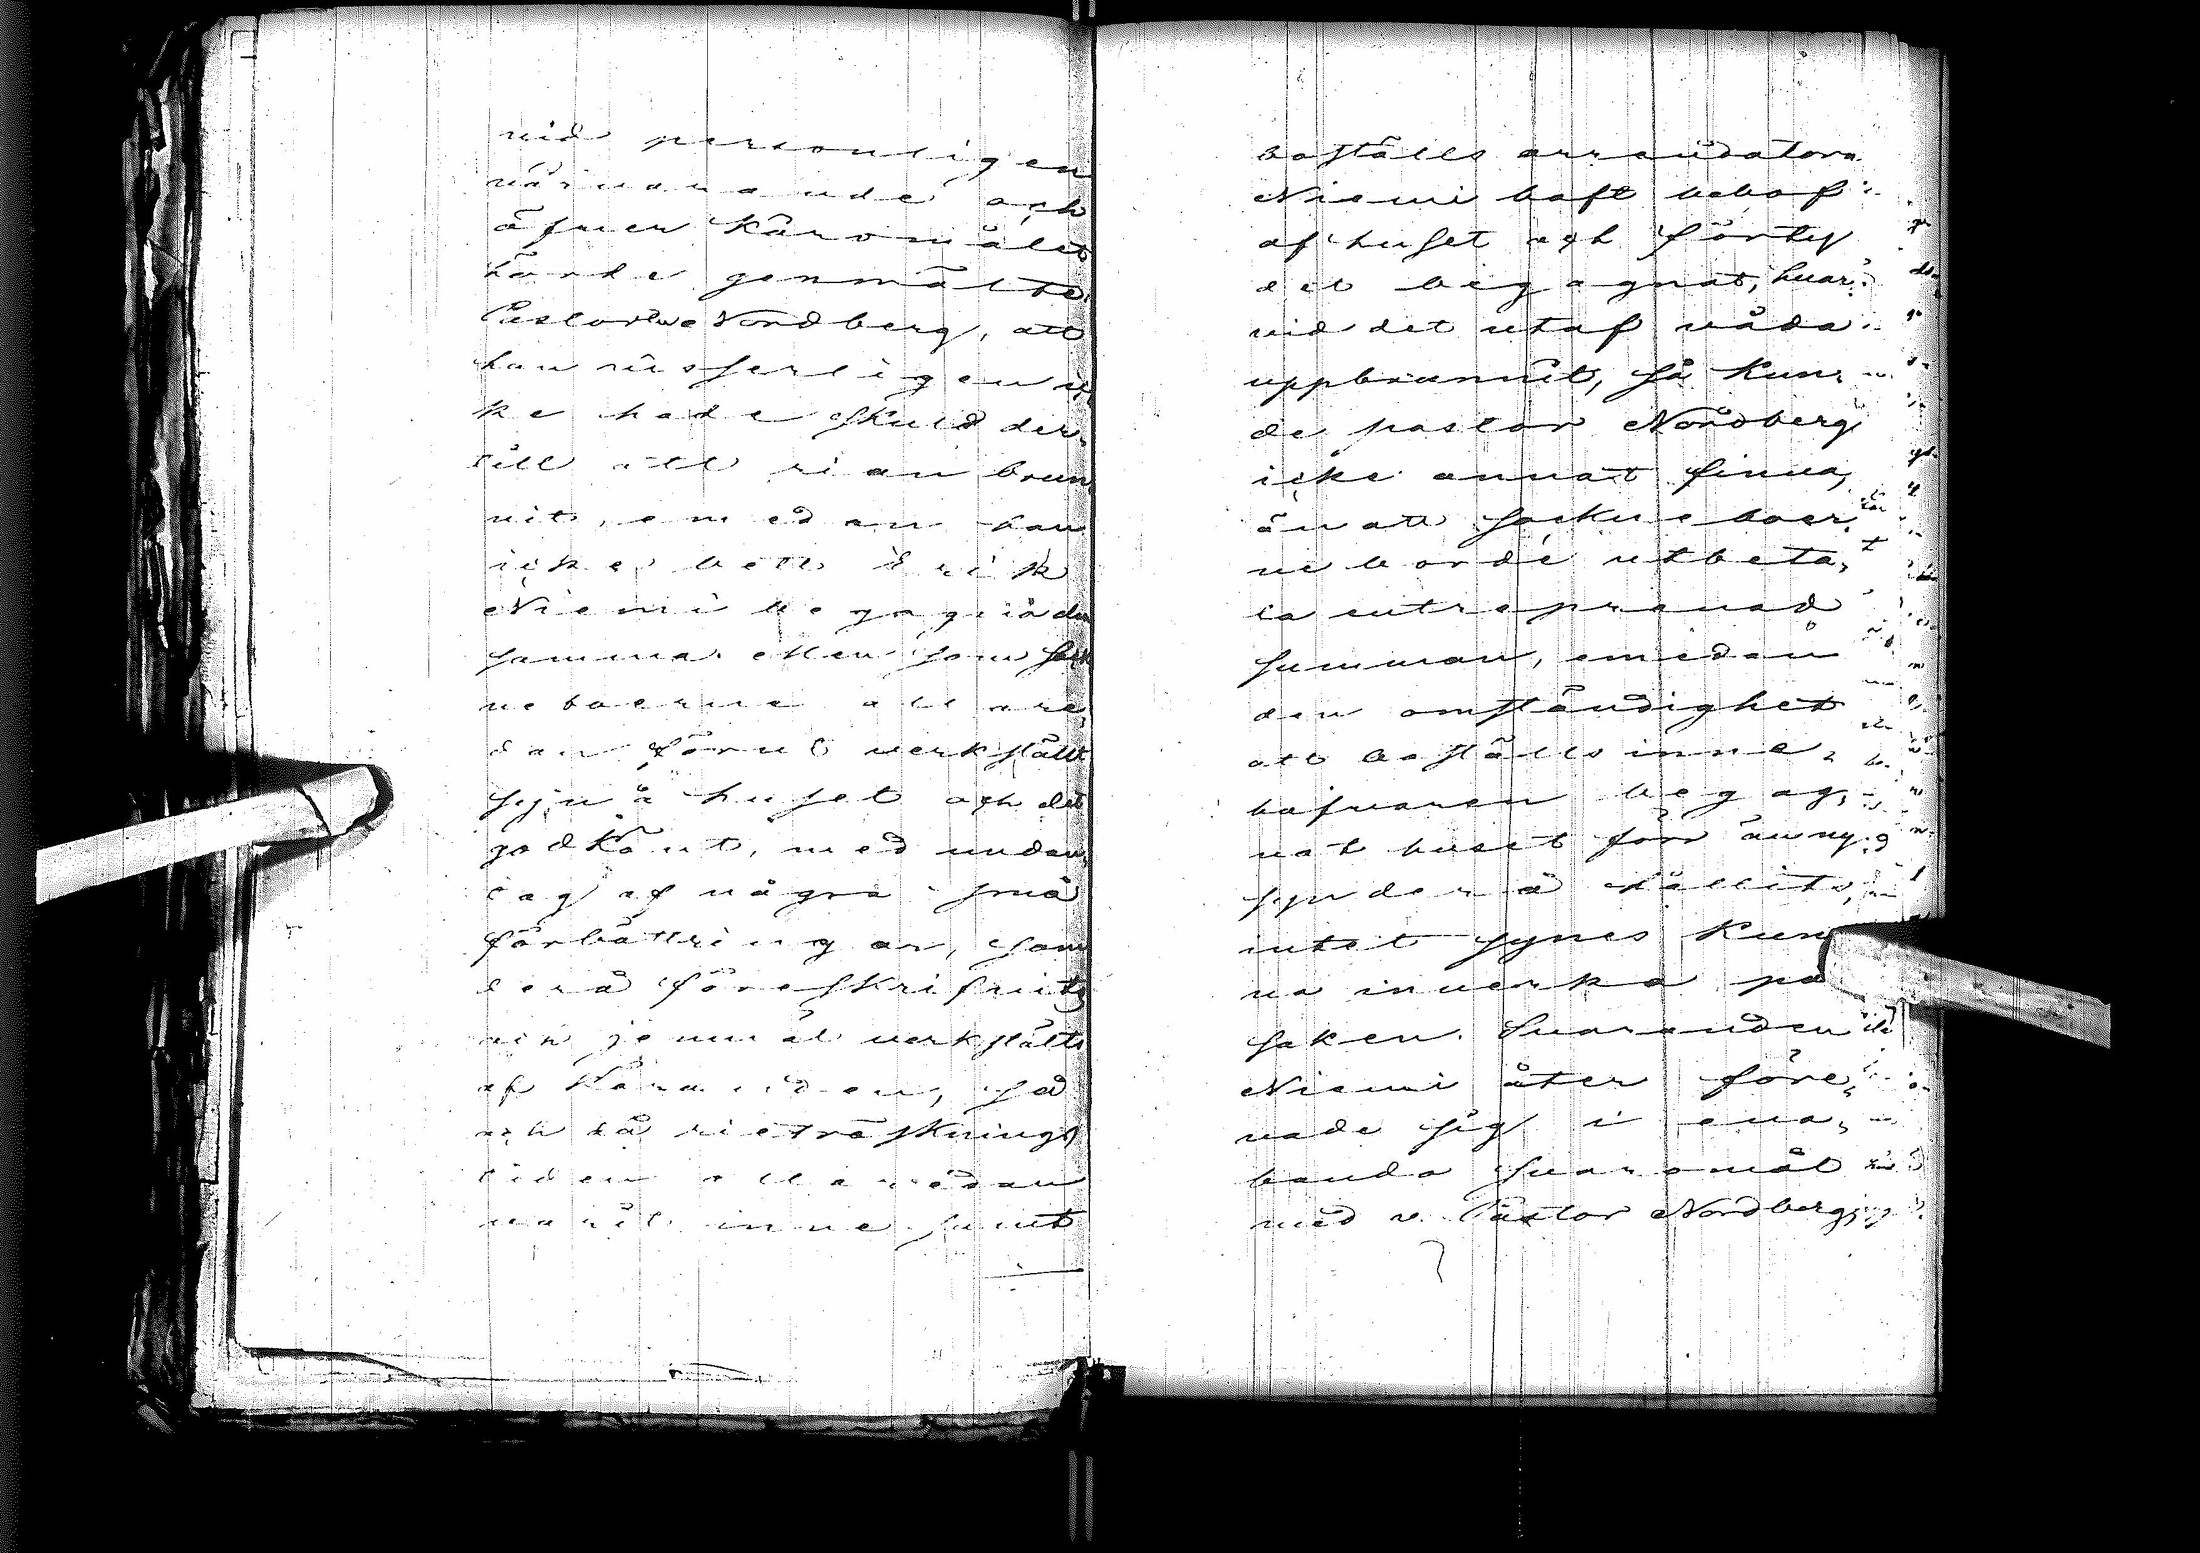 vid personligen
närvarande och
öfver käromålet
hörde genmälte
Pastor Nordberg, att
han visserligen ic¬
ke hade skuld der¬
till att rian brun¬
nit, emedan han
icke bett Erik
Niemi begagna den
samma eller som sock¬
neboerne allare¬
dan förut verkstält
syn å huset och det
godkänt, med undan¬
tag af några små
förbättringar, som
derå föreskrifvits
och jemväl verkstälts
af Käranden, samt
och då rietrösknings
tiden allaredan
varit inne samt
boställs arrendatorn
Niemi haft behof
af huset och förty
det begagnat, hvar¬
vid det utaf våda
uppbrunnit, så kun¬
de pastor Nordberg
icke annat finna,
än att sockneboer¬
ne borde utbeta¬
la entreprenad
summan, emedan
den omständighet
att boställs inne¬
hafvaren begag¬
nat huset förr än ny
syn derå hållits,
intet synes kun¬
na inverka på
saken. Svaranden
Niemi åter före¬
nade sig i ena¬
handa svaromål
med v. Pastor Nordberg;